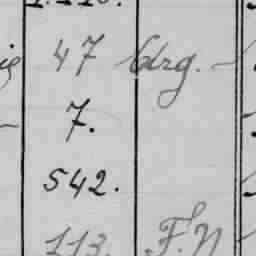 47 Urg.
7.
542.
113. F. N